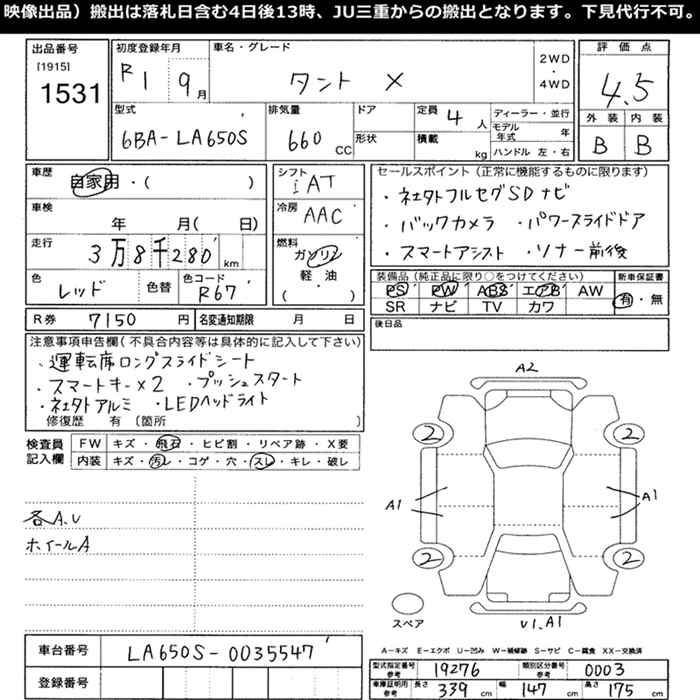 映像出品）搬出は落札日含む4日後13時、JU三重からの搬出となります。下見代行不可。
出品番号
[1915]
1531
初度登録年月
R1 9月
車名・グレード
タント X
2WD
・
4WD
評価点
4.5
外装 内装
B B
型式
6BA-LA650S
排気量
660 CC
ドア
形状
定員 4 人
積載 kg
ディーラー・並行
モデル年式 年
ハンドル 左・右
車歴
自家用・( )
車検
年 月( 日)
走行
3万8千280 km
色
レッド
色替
色コード
R67
シフト
iAT
冷房
AAC
燃料
ガソリン
軽・油
( )
セールスポイント（正常に機能するものに限ります）
・ネエタトフルセグSDナビ
・バックカメラ ・パワースライドドア
・スマートアシスト ・ソナー前後
装備品（純正品に限り○をつけてください）
PS PW ABS エアB AW
SR ナビ TV カワ
新車保証書
有・無
後日品
R券 7150 円
名変通知期限 月 日
注意事項申告欄（不具合内容等は具体的に記入して下さい）
・運転席ロングスライドシート
・スマートキー×2 ・プッシュスタート
・ネエタトアルミ ・LEDヘッドライト
修復歴 有 〔箇所 〕
検査員記入欄
FW キズ・飛石・ヒビ割・リペア跡・X要
内装 キズ・汚レ・コゲ・穴・スレ・キレ・破レ
各A.U
ホイールA
A2
2 2
A1 A1
2 2
スペア
U1.A1
A-キズ E-エクボ U-凹み W-補修跡 S-サビ C-腐食 XX-交換済
車台番号
LA650S-0035547
登録番号
型式指定番号 参考 19276
類別区分番号 参考 0003
車庫証明用 参考 長さ 339 cm 幅 147 cm 高さ 175 cm